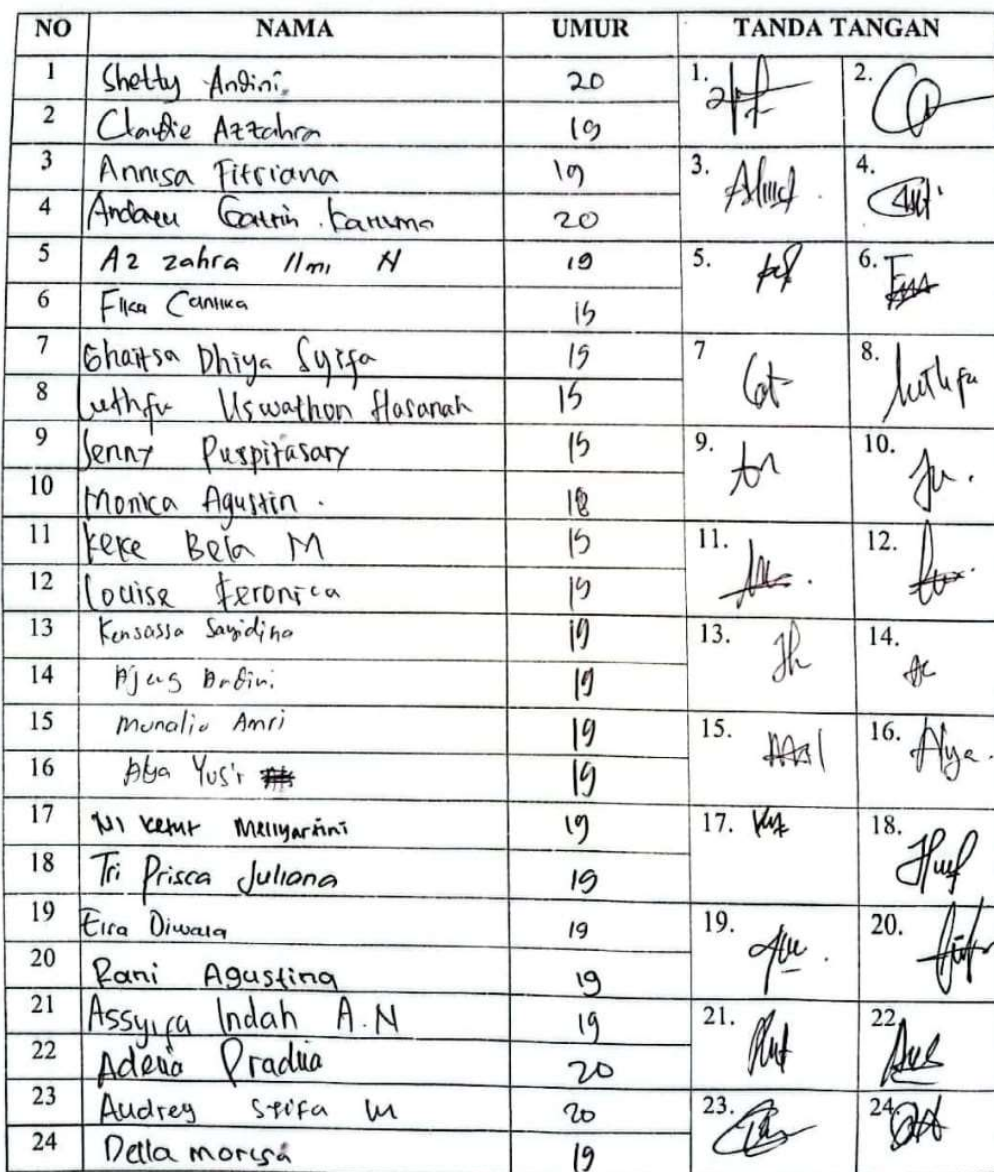 NO NAMA UMUR TANDA TANGAN
1 Shetty Andini 20 1. 2.
2 Claudie Azzahra 19
3 Annisa Fitriana 19 3. 4.
4 Gatrin Karuma 20
5 Az zahra Ilmi N 19 5. 6.
6 Canika 19
7 Ghaitsa Dhiya Syifa 19 7 8. luthfu
8 Luthfu Uswathon Hasanah 19
9 Jenny Puspitasary 19 9. 10.
10 Monica Agustin . 18
11 Keke Bela M 19 11. 12.
12 Louise Feronica 19
13 Kensassa Sayidina 19 13. 14.
14 Ajeng Andini 19
15 Munalia Amri 19 15. 16. Alya
16 Alya Yus'r 19
17 Ni Ketut Meliyartini 19 17. 18.
18 Tri Prisca Juliana 19
19 Eira Diwala 19 19. 20.
20 Rani Agustina 19
21 Assyifa Indah A.N 19 21. 22.
22 Adelia Pradia 20
23 Audrey M 20 23. 24.
24 Della 19